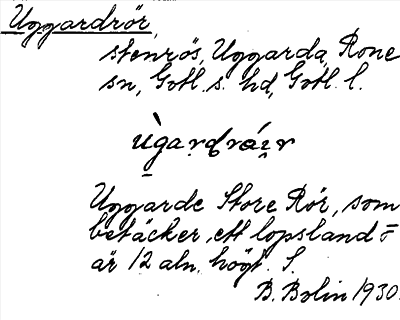 Uggardrör,
stenrös, Uggarda, Rone
sn, Gotl. s. hd, Gotl. l.
Uggarde Store Rör, som
betäcker ett lopsland o
är 12 aln. högt. S.
B. Bolin 1930.